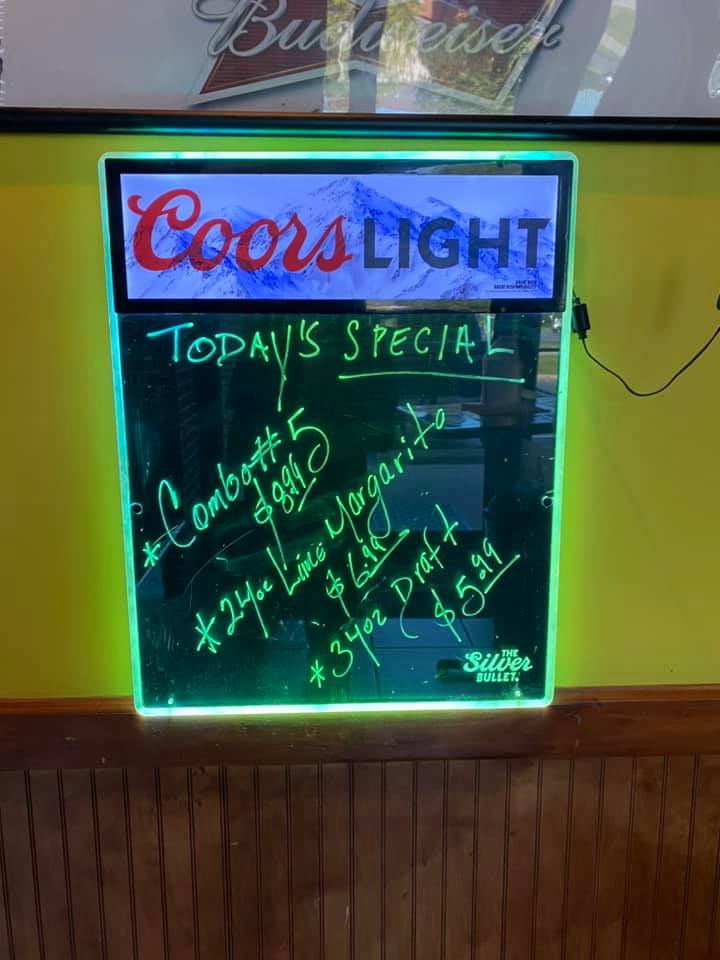 Budweiser
Coors LIGHT
GREAT BEER
GREAT RESPONSIBILITY
TODAY'S SPECIAL
* Combo # 5
$8.99
* 24oz Lime Margarita
$6.99
* 34oz Draft
$5.99
THE
Silver
BULLET.